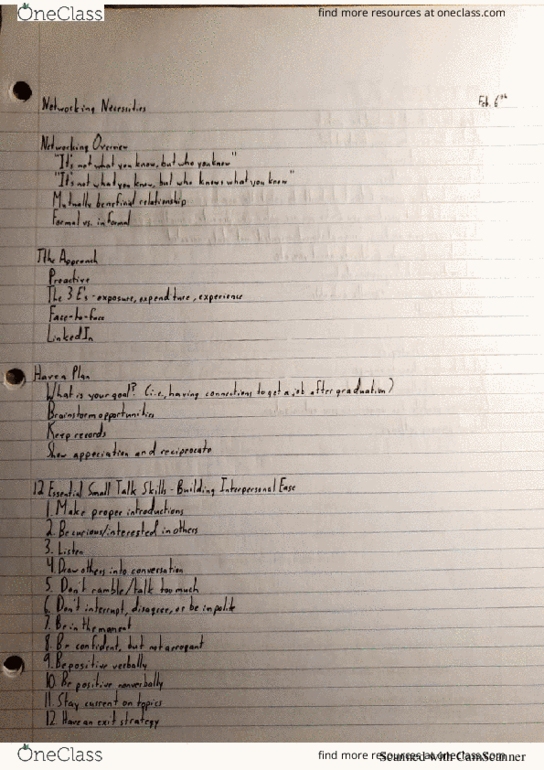 OneClass
find more resources at oneclass.com
Networking Necessities
Feb. 6th
Networking Overview
"It's not what you know, but who you know"
"It's not what you know, but who knows what you know"
Mutually beneficial relationship
Formal vs. informal
The Approach
Proactive
The 3 E's - exposure, expenditure, experience
Face-to-face
LinkedIn
Have a Plan
What is your goal? (i.e., having connections to get a job after graduation)
Brainstorm opportunities
Keep records
Show appreciation and reciprocate
12 Essential Small Talk Skills - Building Interpersonal Ease
1. Make proper introductions
2. Be curious/interested in others
3. Listen
4. Draw others into conversation
5. Don't ramble/talk too much
6. Don't interrupt, disagree, or be impolite
7. Be in the moment
8. Be confident, but not arrogant
9. Be positive verbally
10. Be positive nonverbally
11. Stay current on topics
12. Have an exit strategy
OneClass
find more resources at oneclass.com
Scanned with CamScanner